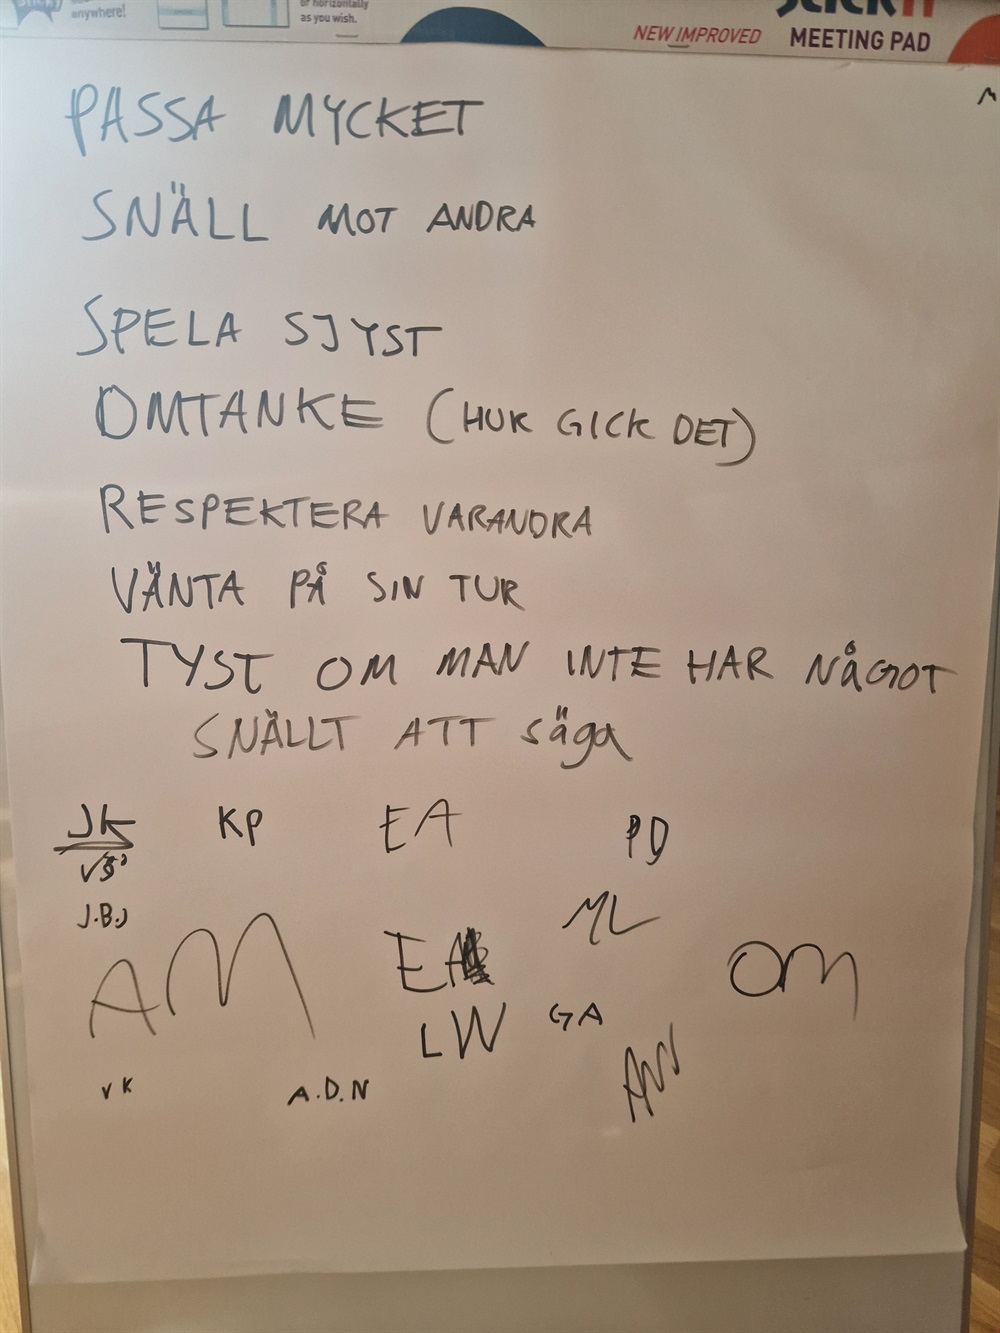 anywhere!
or horizontally
as you wish.
NEW IMPROVED
MEETING PAD
PASSA MYCKET
SNÄLL MOT ANDRA
SPELA SJYST
OMTANKE (HUR GICK DET)
RESPEKTERA VARANDRA
VÄNTA PÅ SIN TUR
TYST OM MAN INTE HAR NÅGOT
SNÄLLT ATT säga
JK
KP
EA
PD
J.B.J
ML
AM
EA
OM
LW
GA
VK
A.D.N